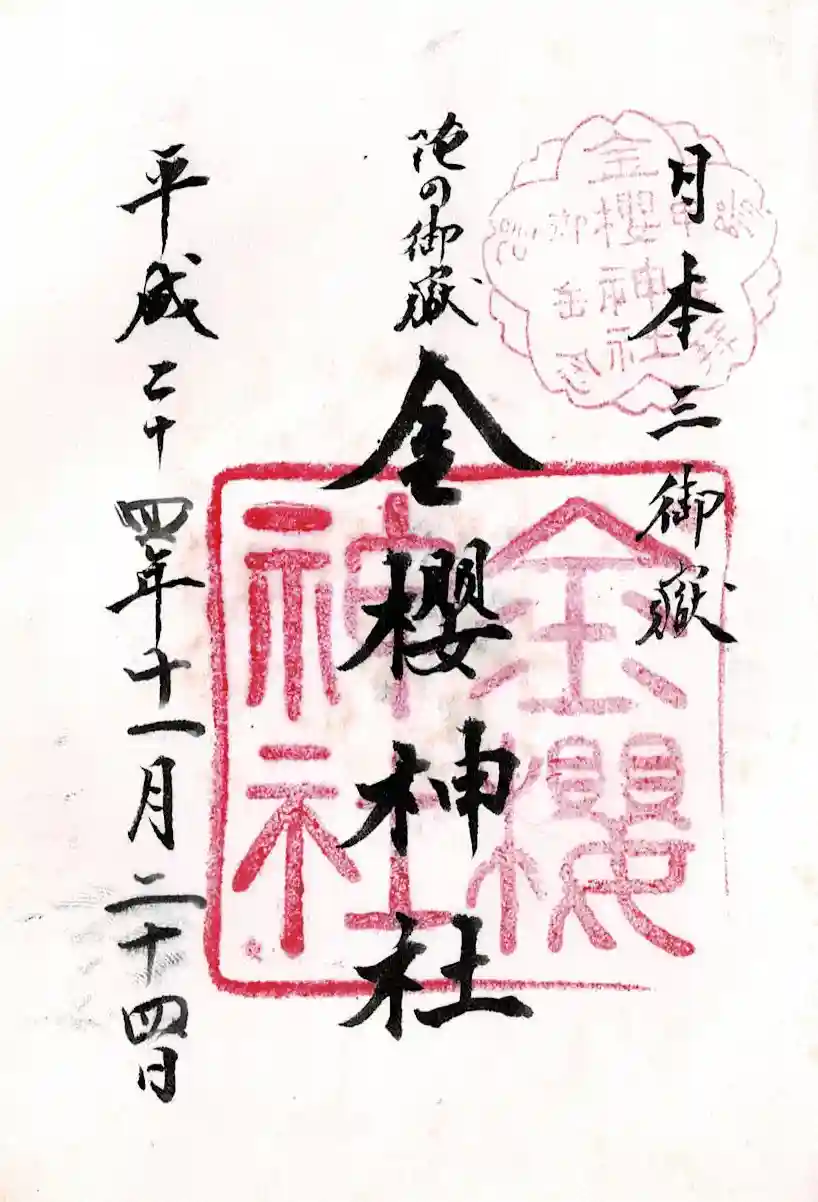 日本三御嶽
金櫻神社
花の御嶽
金櫻神社
金櫻神社
平成二十四年十一月二十四日